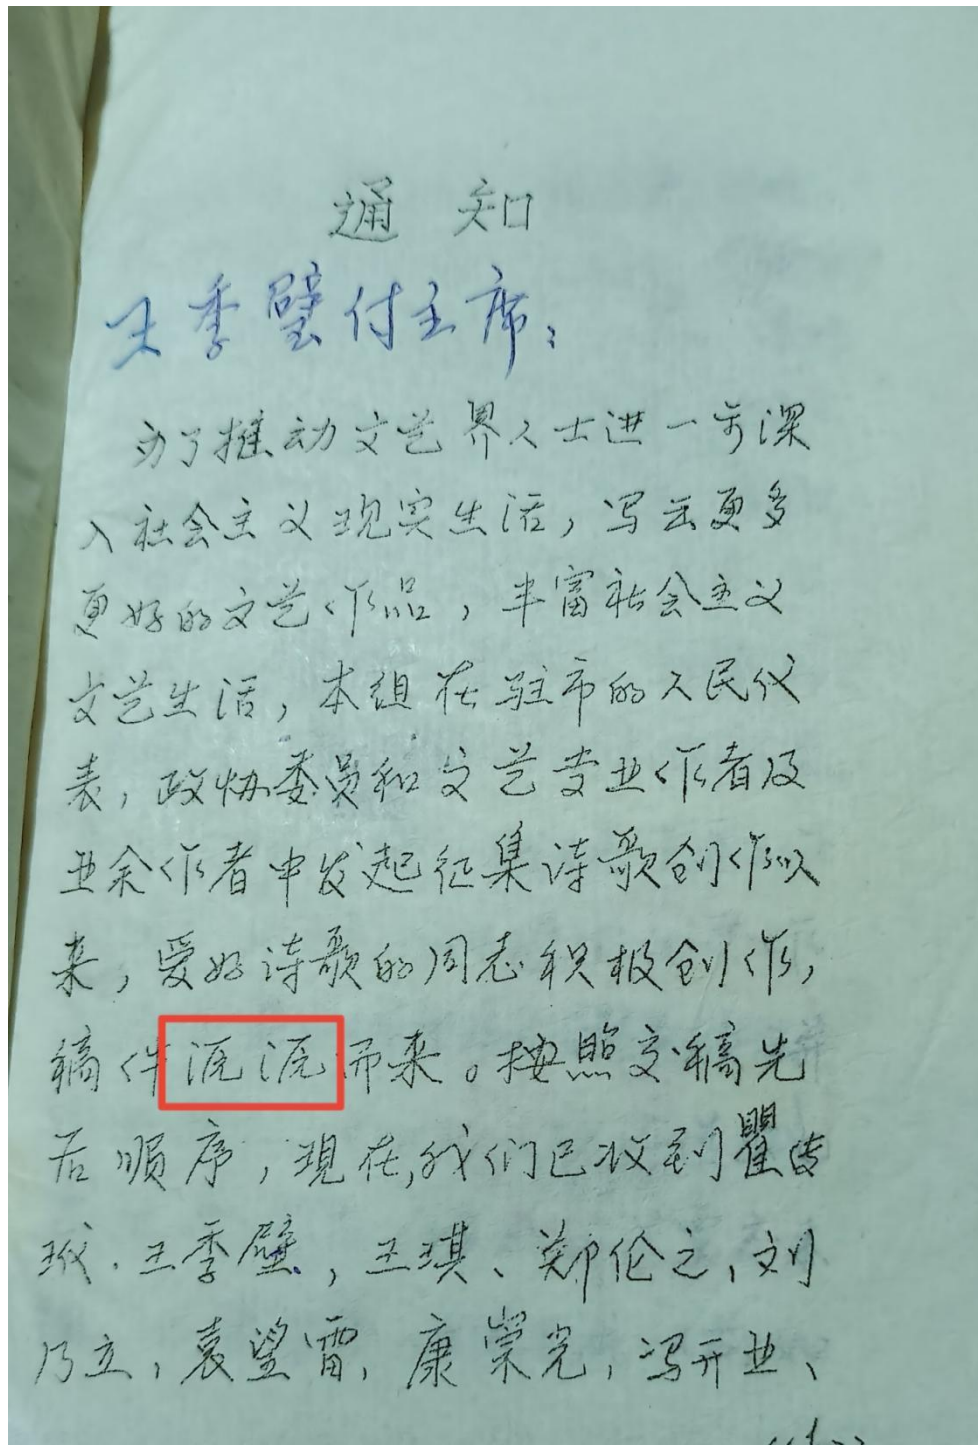 通知
王季壁付主席：
为了推动文艺界人士进一步深
入社会主义现实生活，写出更多
更好的文艺作品，丰富社会主义
文艺生活，本组在驻市的人民代
表，政协委员和文艺专业作者及
业余作者中发起征集诗歌创作以
来，爱好诗歌的同志积极创作，
稿件源源而来。按照交稿先
后顺序，现在，我们已收到瞿传
王季壁，王琪、郑伦之，刘
乃立，袁望雷，康崇光，冯开业、